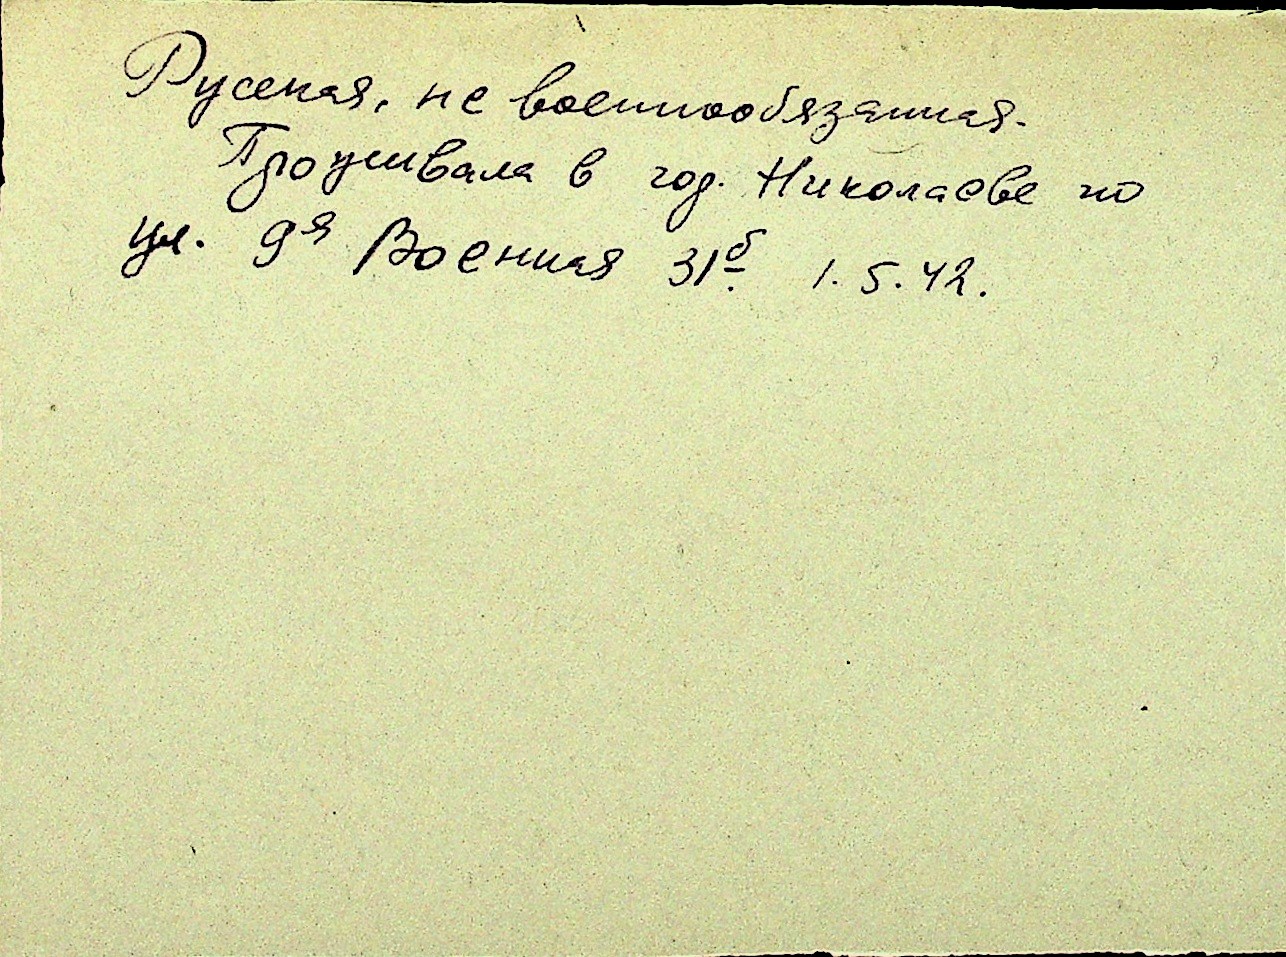 Русская, не военнообязанная.
Проживала в гор. Николаеве по
ул. 9я Военная 31б 1.5.42.